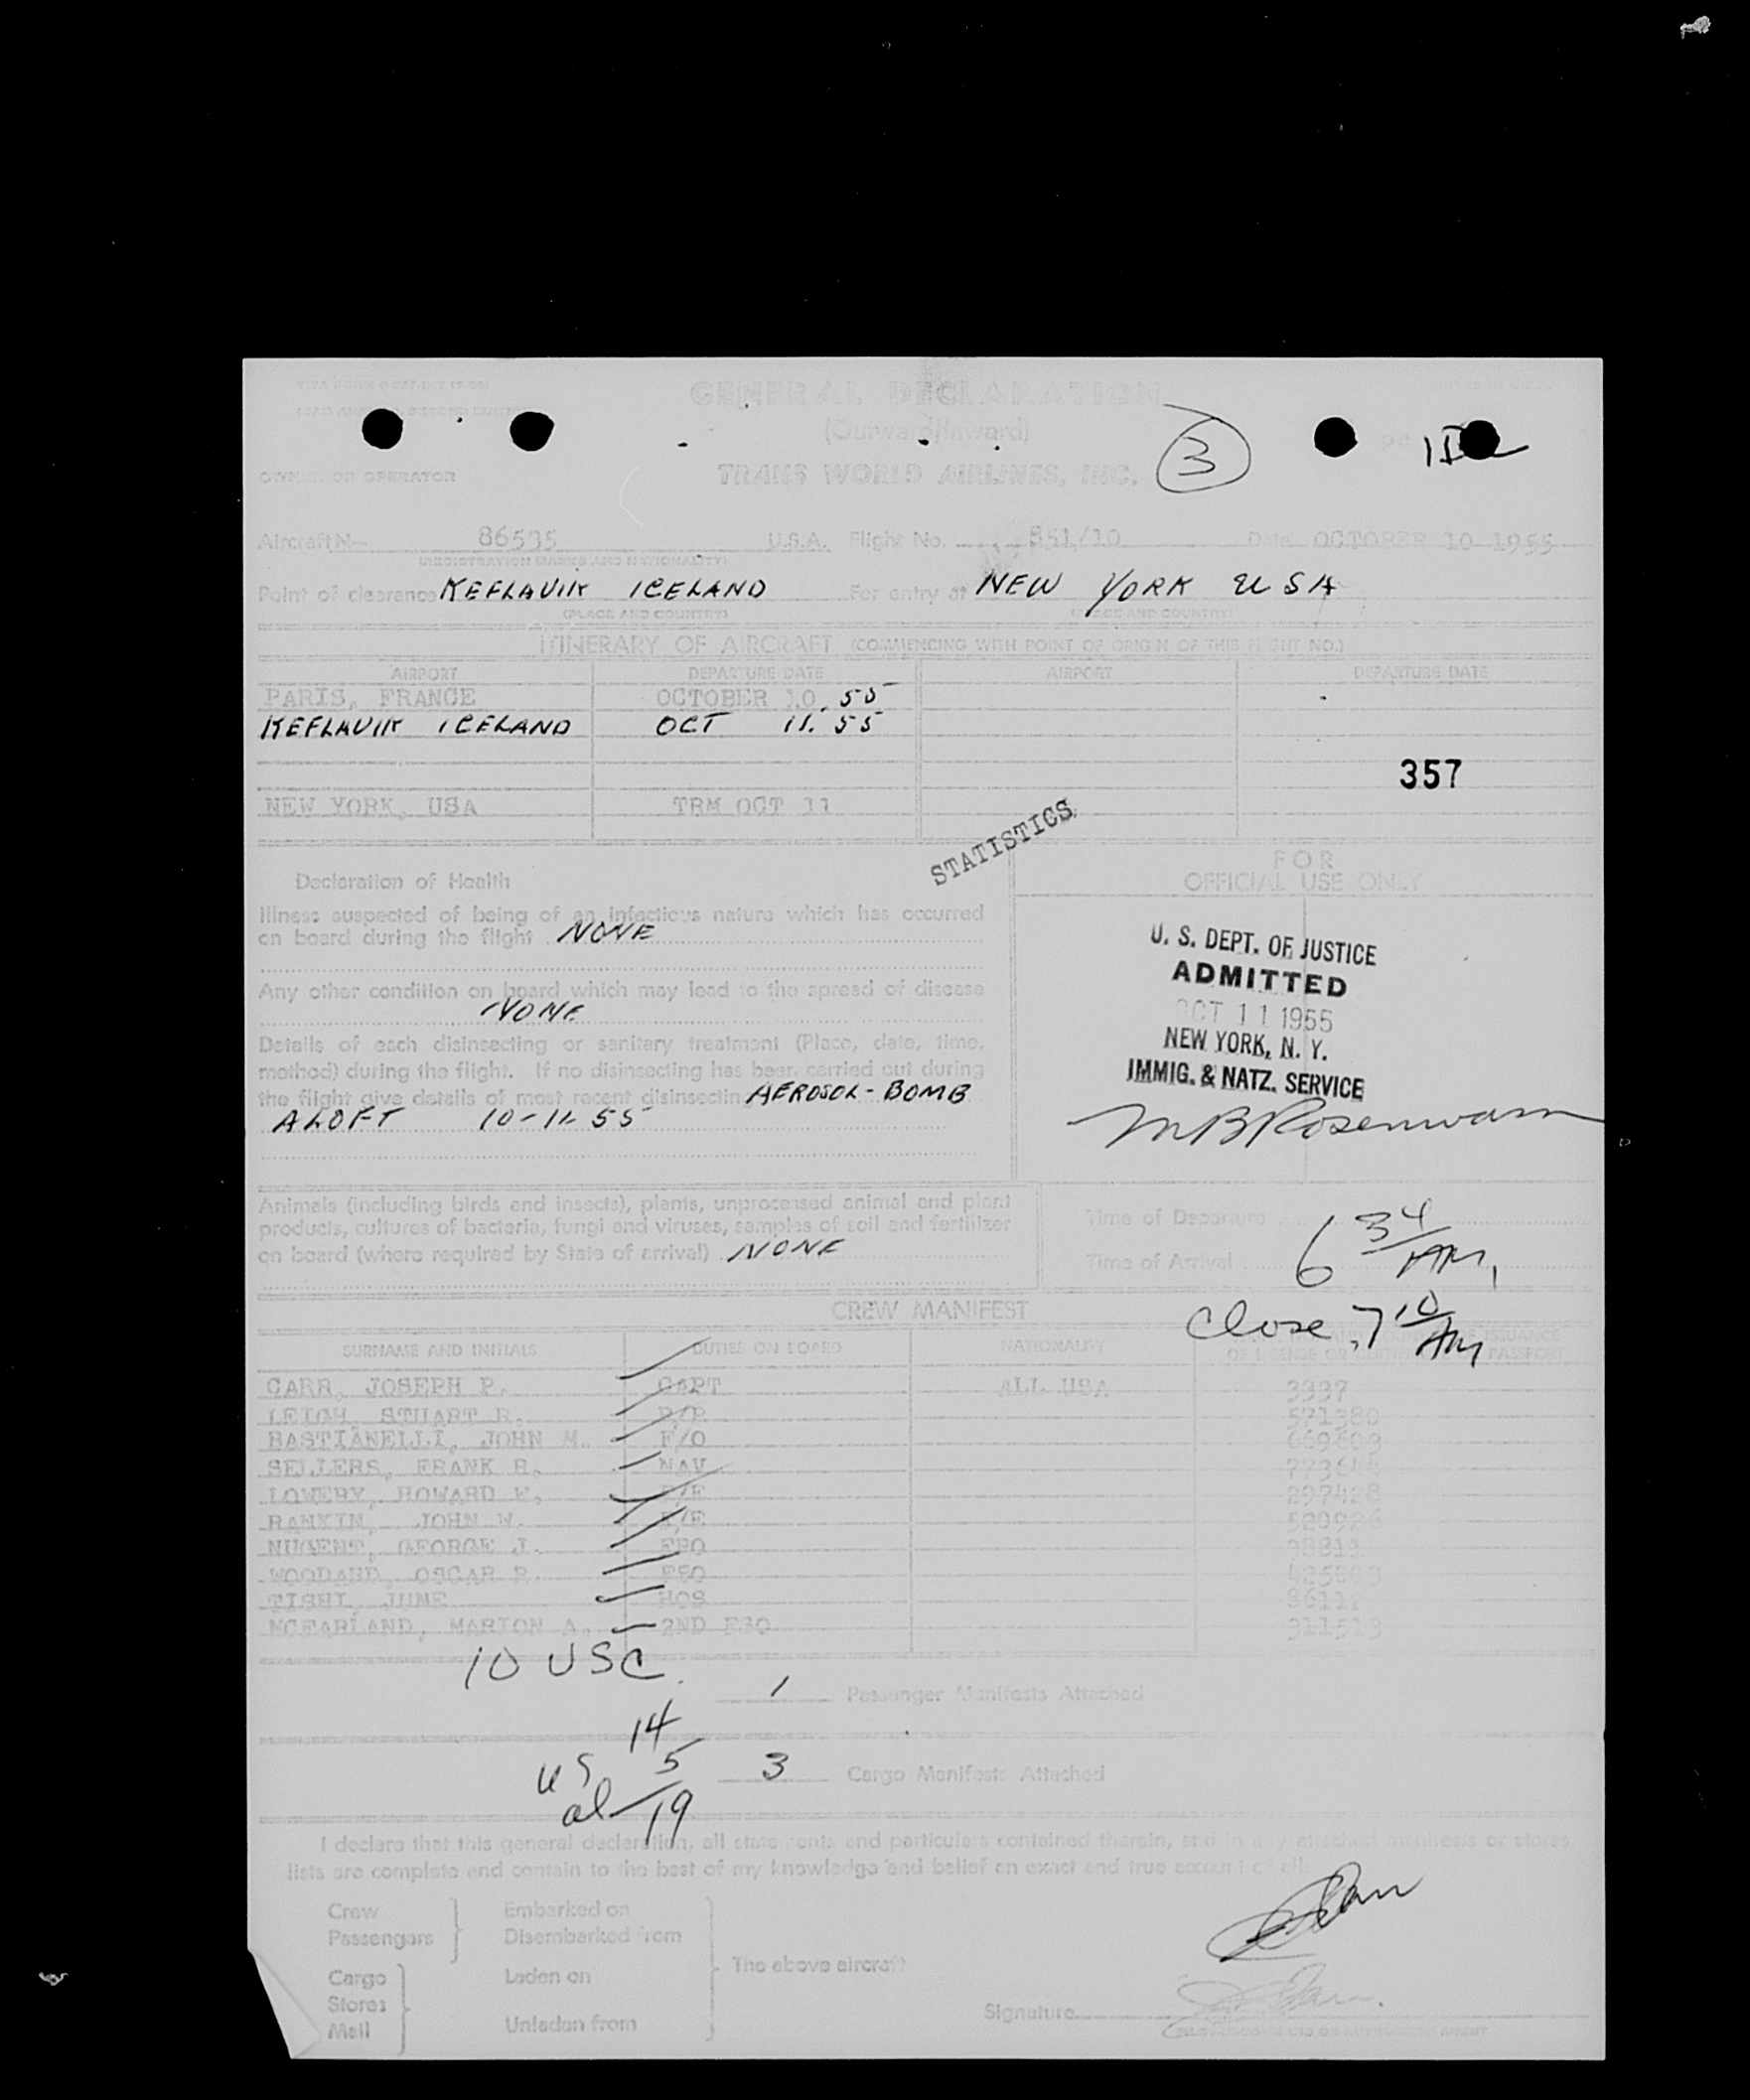 GENERAL DECLARATION
(Outward/Inward)
3
OWNER OR OPERATOR TRANS WORLD AIRLINES, INC.
Aircraft N— 86535 U.S.A. Flight No. 851/10 Date OCTOBER 10 1955
(REGISTRATION MARKS AND NATIONALITY)
Point of clearance KEFLAVIK ICELAND For entry at NEW YORK USA
(PLACE AND COUNTRY) (PLACE AND COUNTRY)
ITINERARY OF AIRCRAFT (COMMENCING WITH POINT OF ORIGIN OF THIS FLIGHT NO.)
AIRPORT DEPARTURE DATE AIRPORT DEPARTURE DATE
PARIS, FRANCE OCTOBER 10. 55
KEFLAVIK ICELAND OCT 11. 55
357
NEW YORK, USA TRM OCT 11
STATISTICS
Declaration of Health
Illness suspected of being of an infectious nature which has occurred
on board during the flight NONE
Any other condition on board which may lead to the spread of disease
NONE
Details of each disinsecting or sanitary treatment (Place, date, time,
method) during the flight. If no disinsecting has been carried out during
the flight give details of most recent disinsecting AEROSOL-BOMB
ALOFT 10-11-55
FOR
OFFICIAL USE ONLY
U. S. DEPT. OF JUSTICE
ADMITTED
OCT 11 1955
NEW YORK, N. Y.
IMMIG. & NATZ. SERVICE
Animals (including birds and insects), plants, unprocessed animal and plant
products, cultures of bacteria, fungi and viruses, samples of soil and fertilizer
on board (where required by State of arrival) NONE
Time of Departure
Time of Arrival 6 34 AM
Close 7 10 AM
CREW MANIFEST
SURNAME AND INITIALS DUTIES ON BOARD NATIONALITY
CARR, JOSEPH P. CAPT ALL USA 3337
LEIGH, STUART R. 571380
BASTIANELLI, JOHN M. F/O
SELLERS, FRANK B. NAV
LOWERY, HOWARD E. F/E 297428
RANKIN, JOHN W. F/E
NUGENT, GEORGE J.
WOODARD, OSCAR R.
TISHI, JUNE HOS
MCFARLAND, MARION A. 2ND
10 USC
1 Passenger Manifests Attached
14
US 5
al 19
3 Cargo Manifests Attached
I declare that this general declaration, all statements and particulars contained therein, and in any attached manifests or stores
lists are complete and contain to the best of my knowledge and belief an exact and true account of all:
Crew
Passengers
Embarked on
Disembarked from
Cargo
Stores
Mail
Laden on
Unladen from
The above aircraft
Signature